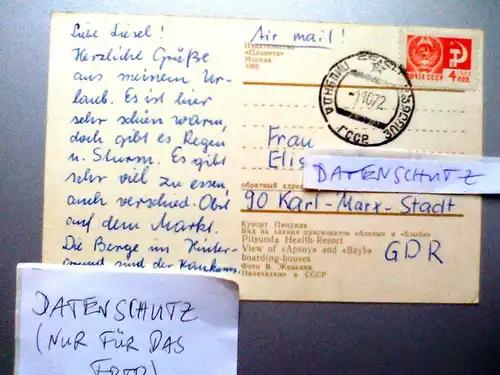 Liebe Liesel!
Herzliche Grüße
aus meinem Ur-
laub. Es ist hier
sehr schön warm,
doch gibt es Regen
u. Sturm. Es gibt
sehr viel zu essen,
auch verschied. Obst
auf dem Markt.
Die Berge im Hinter-
grund sind der Kaukasus.
Air mail!
Издательство
«Планета»
Москва
ПОЧТА СССР
4 коп
Frau
Elis
DATENSCHUTZ
обратный адрес
90 Karl-Marx-Stadt
GDR
Курорт Пицунда
Вид на здания пансионатов «Апсны» и «Бзыбь»
Pitsunda Health-Resort
View of «Apsny» and «Bzyb»
boarding-houses
Напечатано в СССР
DATENSCHUTZ
(NUR FÜR DAS